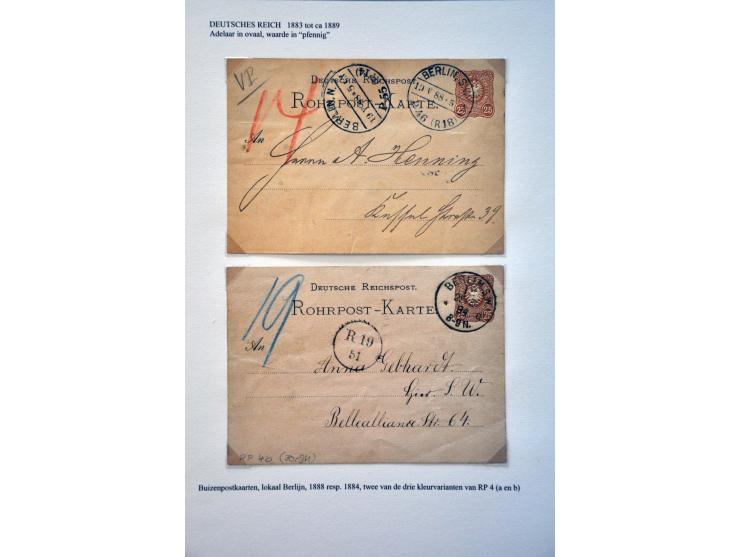 DEUTSCHES REICH 1883 tot ca 1889
Adelaar in ovaal, waarde in “pfennig”
VB
14
DEUTSCHE REICHSPOST.
ROHRPOST-KARTE.
BERLIN, N.
P 55
BERLIN, S.W.
19 V 88
46 (R18)
25
An
Herrn A. Henning
Straße 39
19
DEUTSCHE REICHSPOST.
ROHRPOST-KARTE
BERLIN, S.W.
84
8-9N.
25
R 19
51
An
Anna Gebhardt.
hier. S. W.
Bellealliance Str. 64.
RP 4b
Buizenpostkaarten, lokaal Berlijn, 1888 resp. 1884, twee van de drie kleurvarianten van RP 4 (a en b)